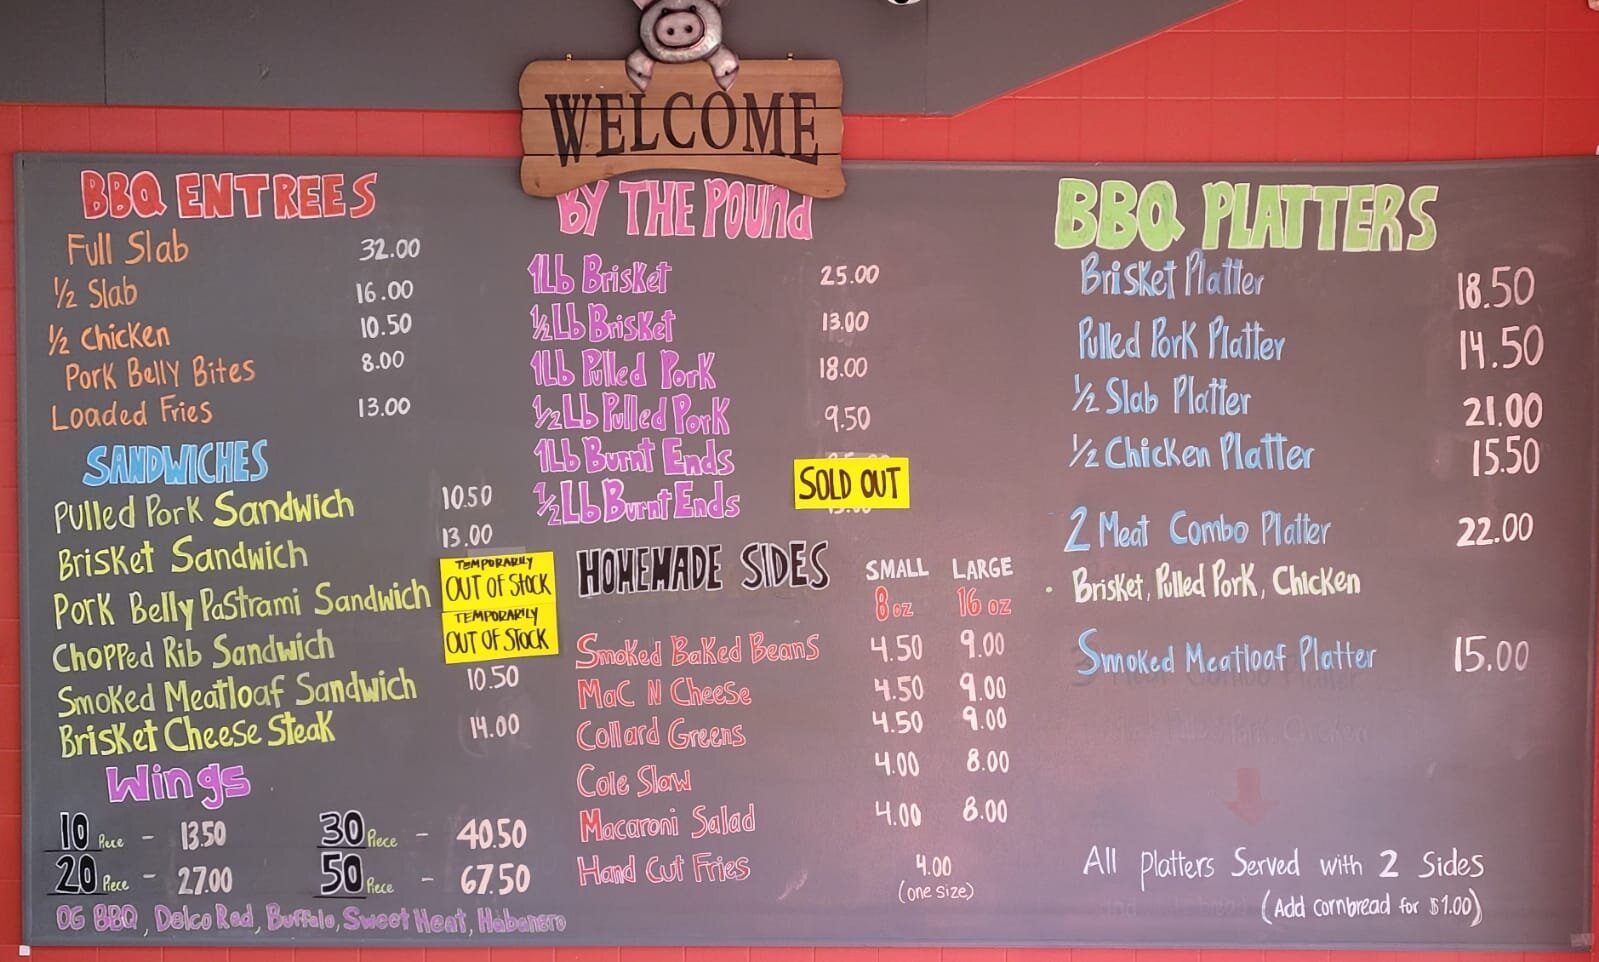 WELCOME
BBQ ENTREES
Full Slab 32.00
1/2 Slab 16.00
1/2 Chicken 10.50
Pork Belly Bites 8.00
Loaded Fries 13.00
SANDWICHES
Pulled Pork Sandwich 10.50
Brisket Sandwich 13.00
Pork Belly Pastrami Sandwich TEMPORARILY OUT OF STOCK
Chopped Rib Sandwich TEMPORARILY OUT OF STOCK
Smoked Meatloaf Sandwich 10.50
Brisket Cheese Steak 14.00
Wings
10 Piece - 13.50 30 Piece - 40.50
20 Piece - 27.00 50 Piece - 67.50
OG BBQ, Delco Red, Buffalo, Sweet Heat, Habanero
BY THE POUNd
1Lb Brisket 25.00
1/2 Lb Brisket 13.00
1Lb Pulled Pork 18.00
1/2 Lb Pulled Pork 9.50
1Lb Burnt Ends
SOLD OUT
1/2 Lb Burnt Ends
HOMEMADE SIDES SMALL LARGE
8 oz 16 oz
Smoked Baked Beans 4.50 9.00
Mac N Cheese 4.50 9.00
Collard Greens 4.50 9.00
Cole Slaw 4.00 8.00
Macaroni Salad 4.00 8.00
Hand Cut Fries 4.00
(one size)
BBQ PLATTERS
Brisket Platter 18.50
Pulled Pork Platter 14.50
1/2 Slab Platter 21.00
1/2 Chicken Platter 15.50
2 Meat Combo Platter 22.00
• Brisket, Pulled Pork, Chicken
Smoked Meatloaf Platter 15.00
All Platters Served with 2 Sides
(Add cornbread for $1.00)